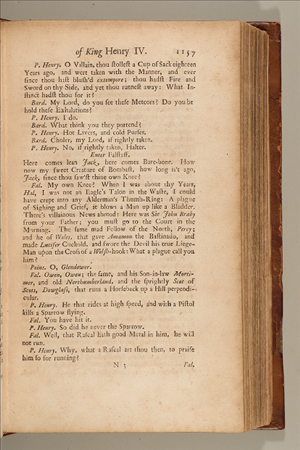 of King Henry IV. 1157
P. Henry. O Villain, thou stollest a Cup of Sack eighteen
Years ago, and wert taken with the Manner, and ever
since thou hast blush'd extempore; thou hadst Fire and
Sword on thy Side, and yet thou rannest away: What In-
stinct hadst thou for it?
Bard. My Lord, do you see these Meteors? Do you be-
hold these Exhalations?
P. Henry. I do.
Bard. What think you they portend?
P. Henry. Hot Livers, and cold Purses.
Bard. Choler, my Lord, if rightly taken.
P. Henry. No, if rightly taken, Halter.
Enter Falstaff.
Here comes lean Jack, here comes Bare-bone. How
now my sweet Creature of Bombast, how long is't ago,
Jack, since thou saw'st thine own Knee?
Fal. My own Knee? When I was about thy Years,
Hal, I was not an Eagle's Talon in the Waste, I could
have crept into any Alderman's Thumb-Ring: A plague
of Sighing and Grief, it blows a Man up like a Bladder.
There's villainous News abroad: Here was Sir John Braby
from your Father; you must go to the Court in the
Morning. The same mad Fellow of the North, Percy;
and he of Wales, that gave Amamon the Bastinado, and
made Lucifer Cuckold, and swore the Devil his true Liege-
Man upon the Cross of a Welsh-hook: What a plague call you
him?
Poins. O, Glendower.
Fal. Owen, Owen; the same, and his Son-in-law Morti-
mer, and old Northumberland, and the sprightly Scot of
Scots, Dowglass, that runs a Horseback up a Hill perpendi-
cular.
P. Henry. He that rides at high speed, and with a Pistol
kills a Sparrow flying.
Fal. You have hit it.
P. Henry. So did he never the Sparrow.
Fal. Well, that Rascal hath good Metal in him, he will
not run.
P. Henry. Why, what a Rascal art thou then, to praise
him so for running?
N 3 Fal.